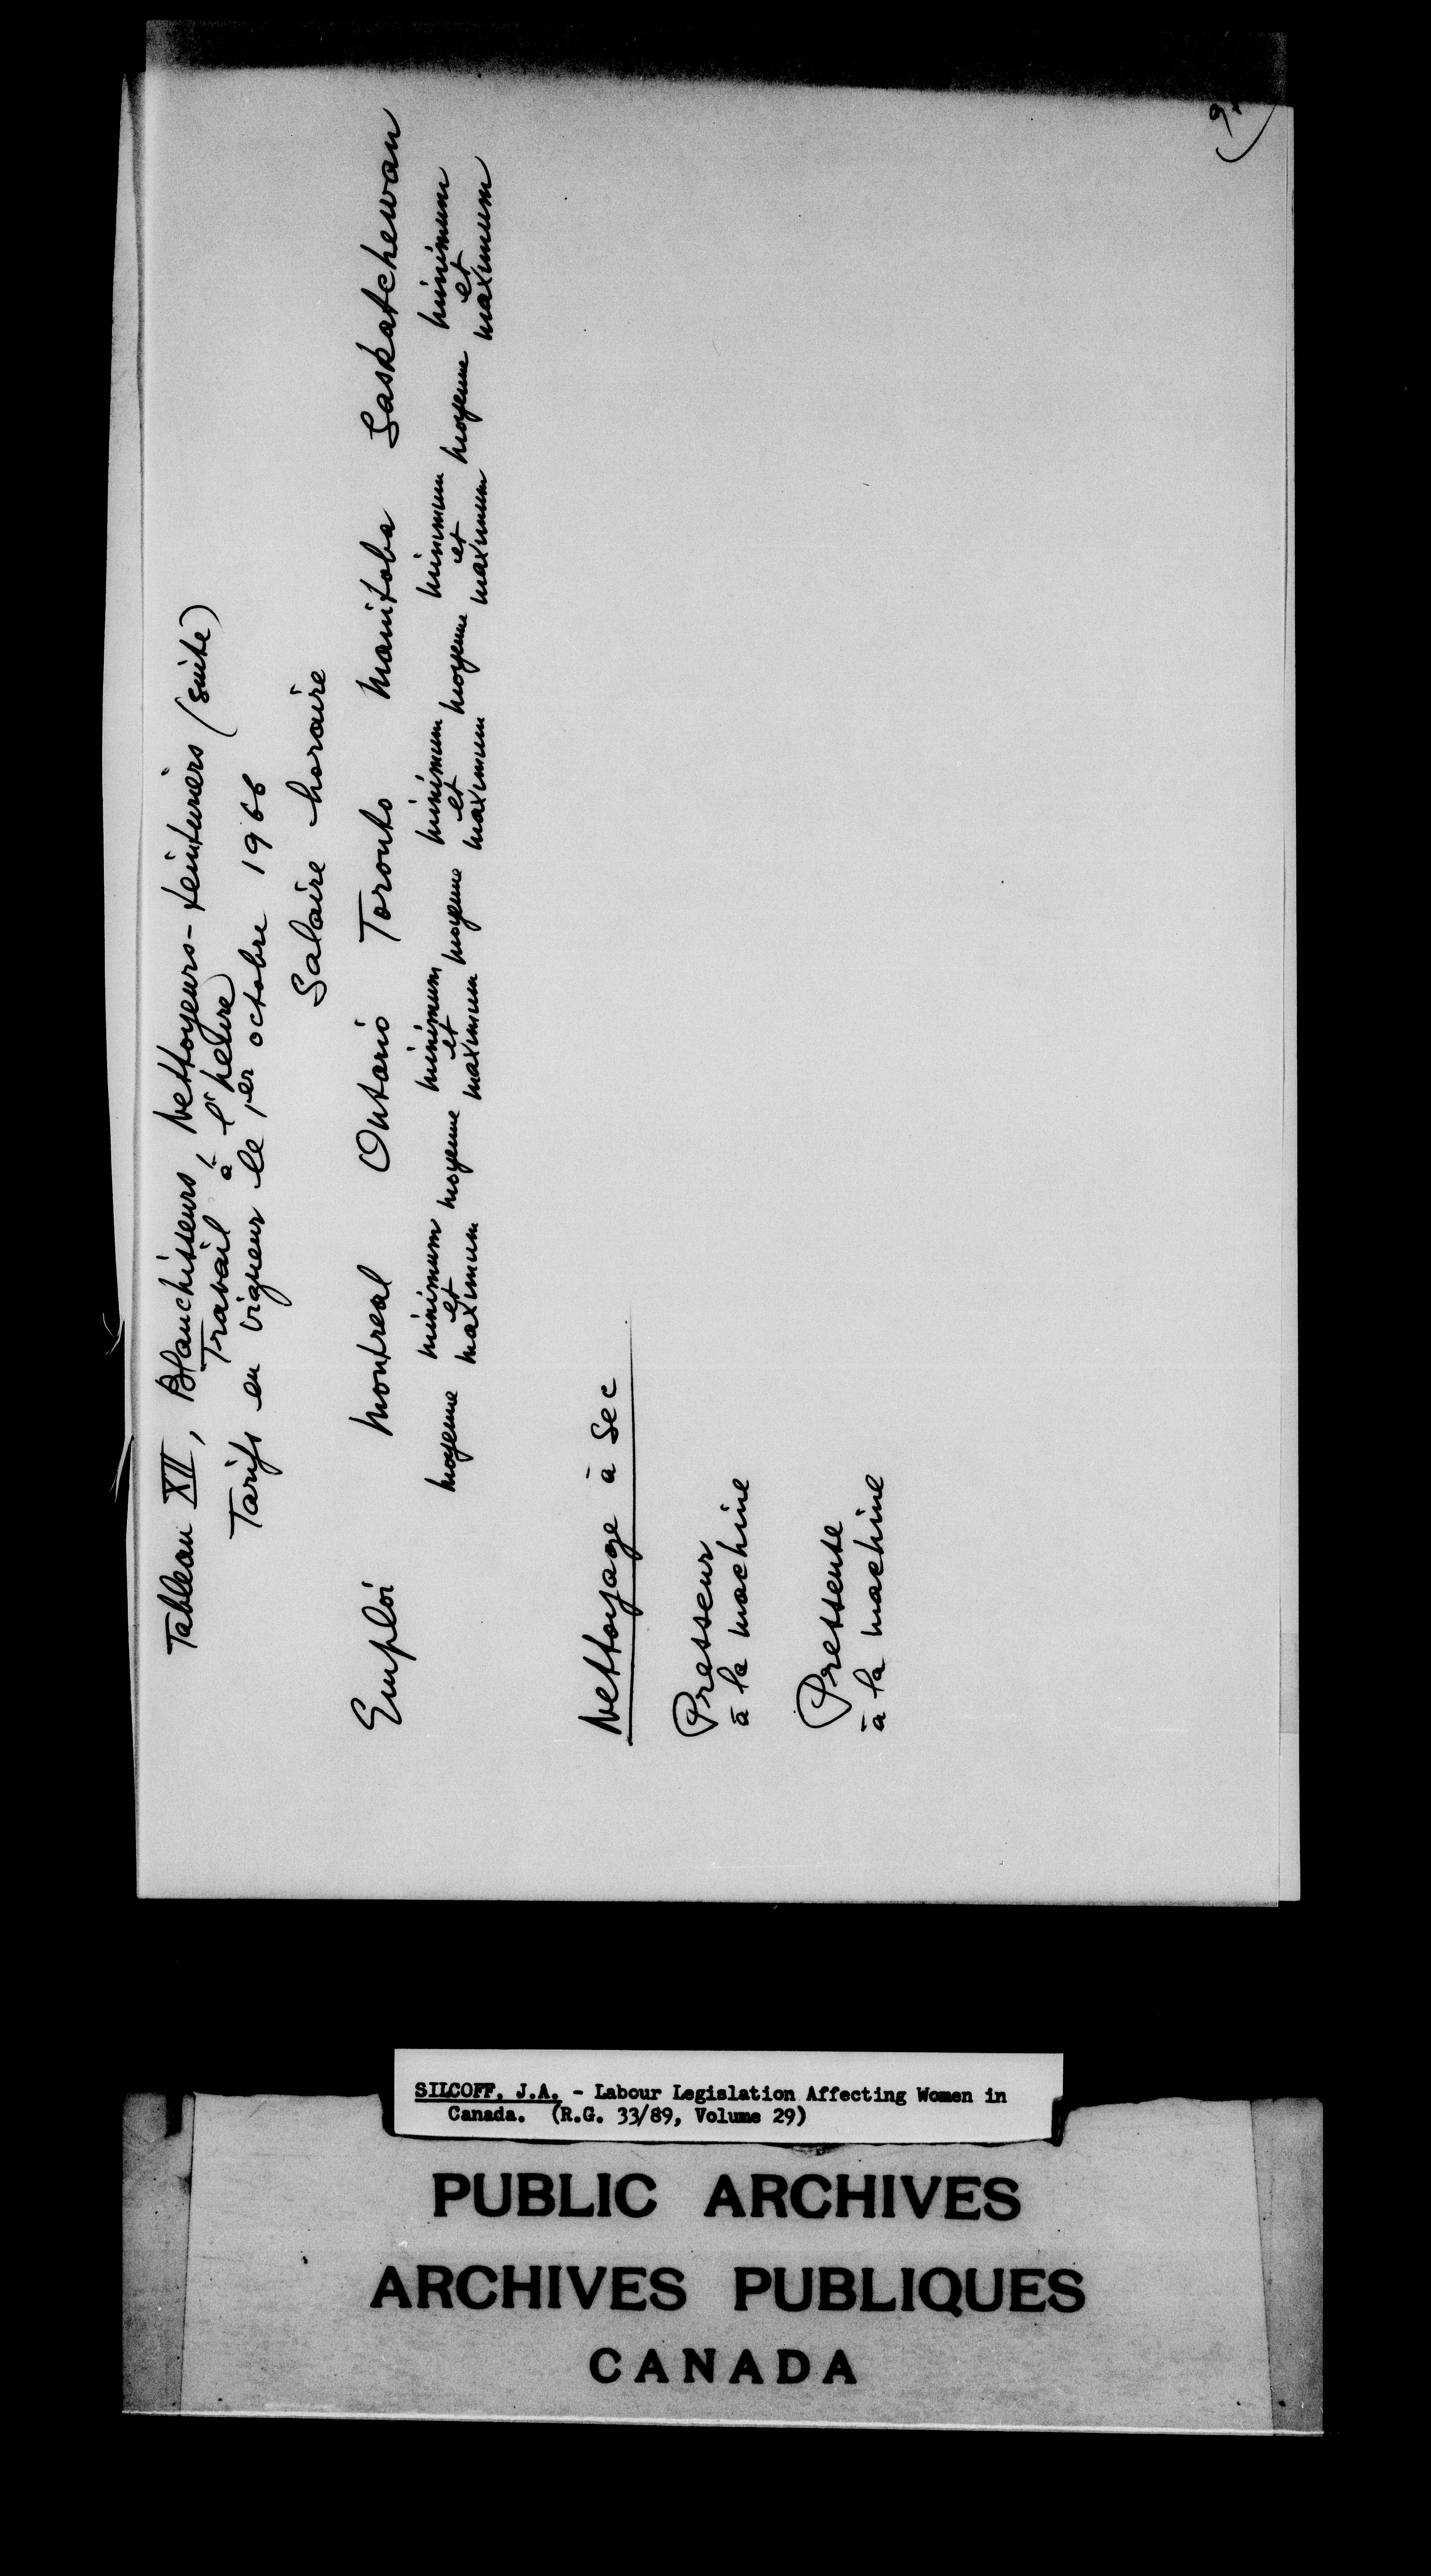 Tableau XII, Blanchisseurs, Nettoyeurs-teinturiers (suite)
Travail à l'heure
Tarifs en vigueur le 1er octobre 1966
Salaire horaire
Emploi Montreal Ontario Toronto Manitoba Saskatchewan
moyenne minimum et maximum moyenne minimum et maximum moyenne minimum et maximum moyenne minimum et maximum moyenne minimum et maximum
Nettoyage à sec
Presseur
à la machine
Presseuse
à la machine
SILCOFF, J.A. - Labour Legislation Affecting Women in
Canada. (R.G. 33/89, Volume 29)
PUBLIC ARCHIVES
ARCHIVES PUBLIQUES
CANADA